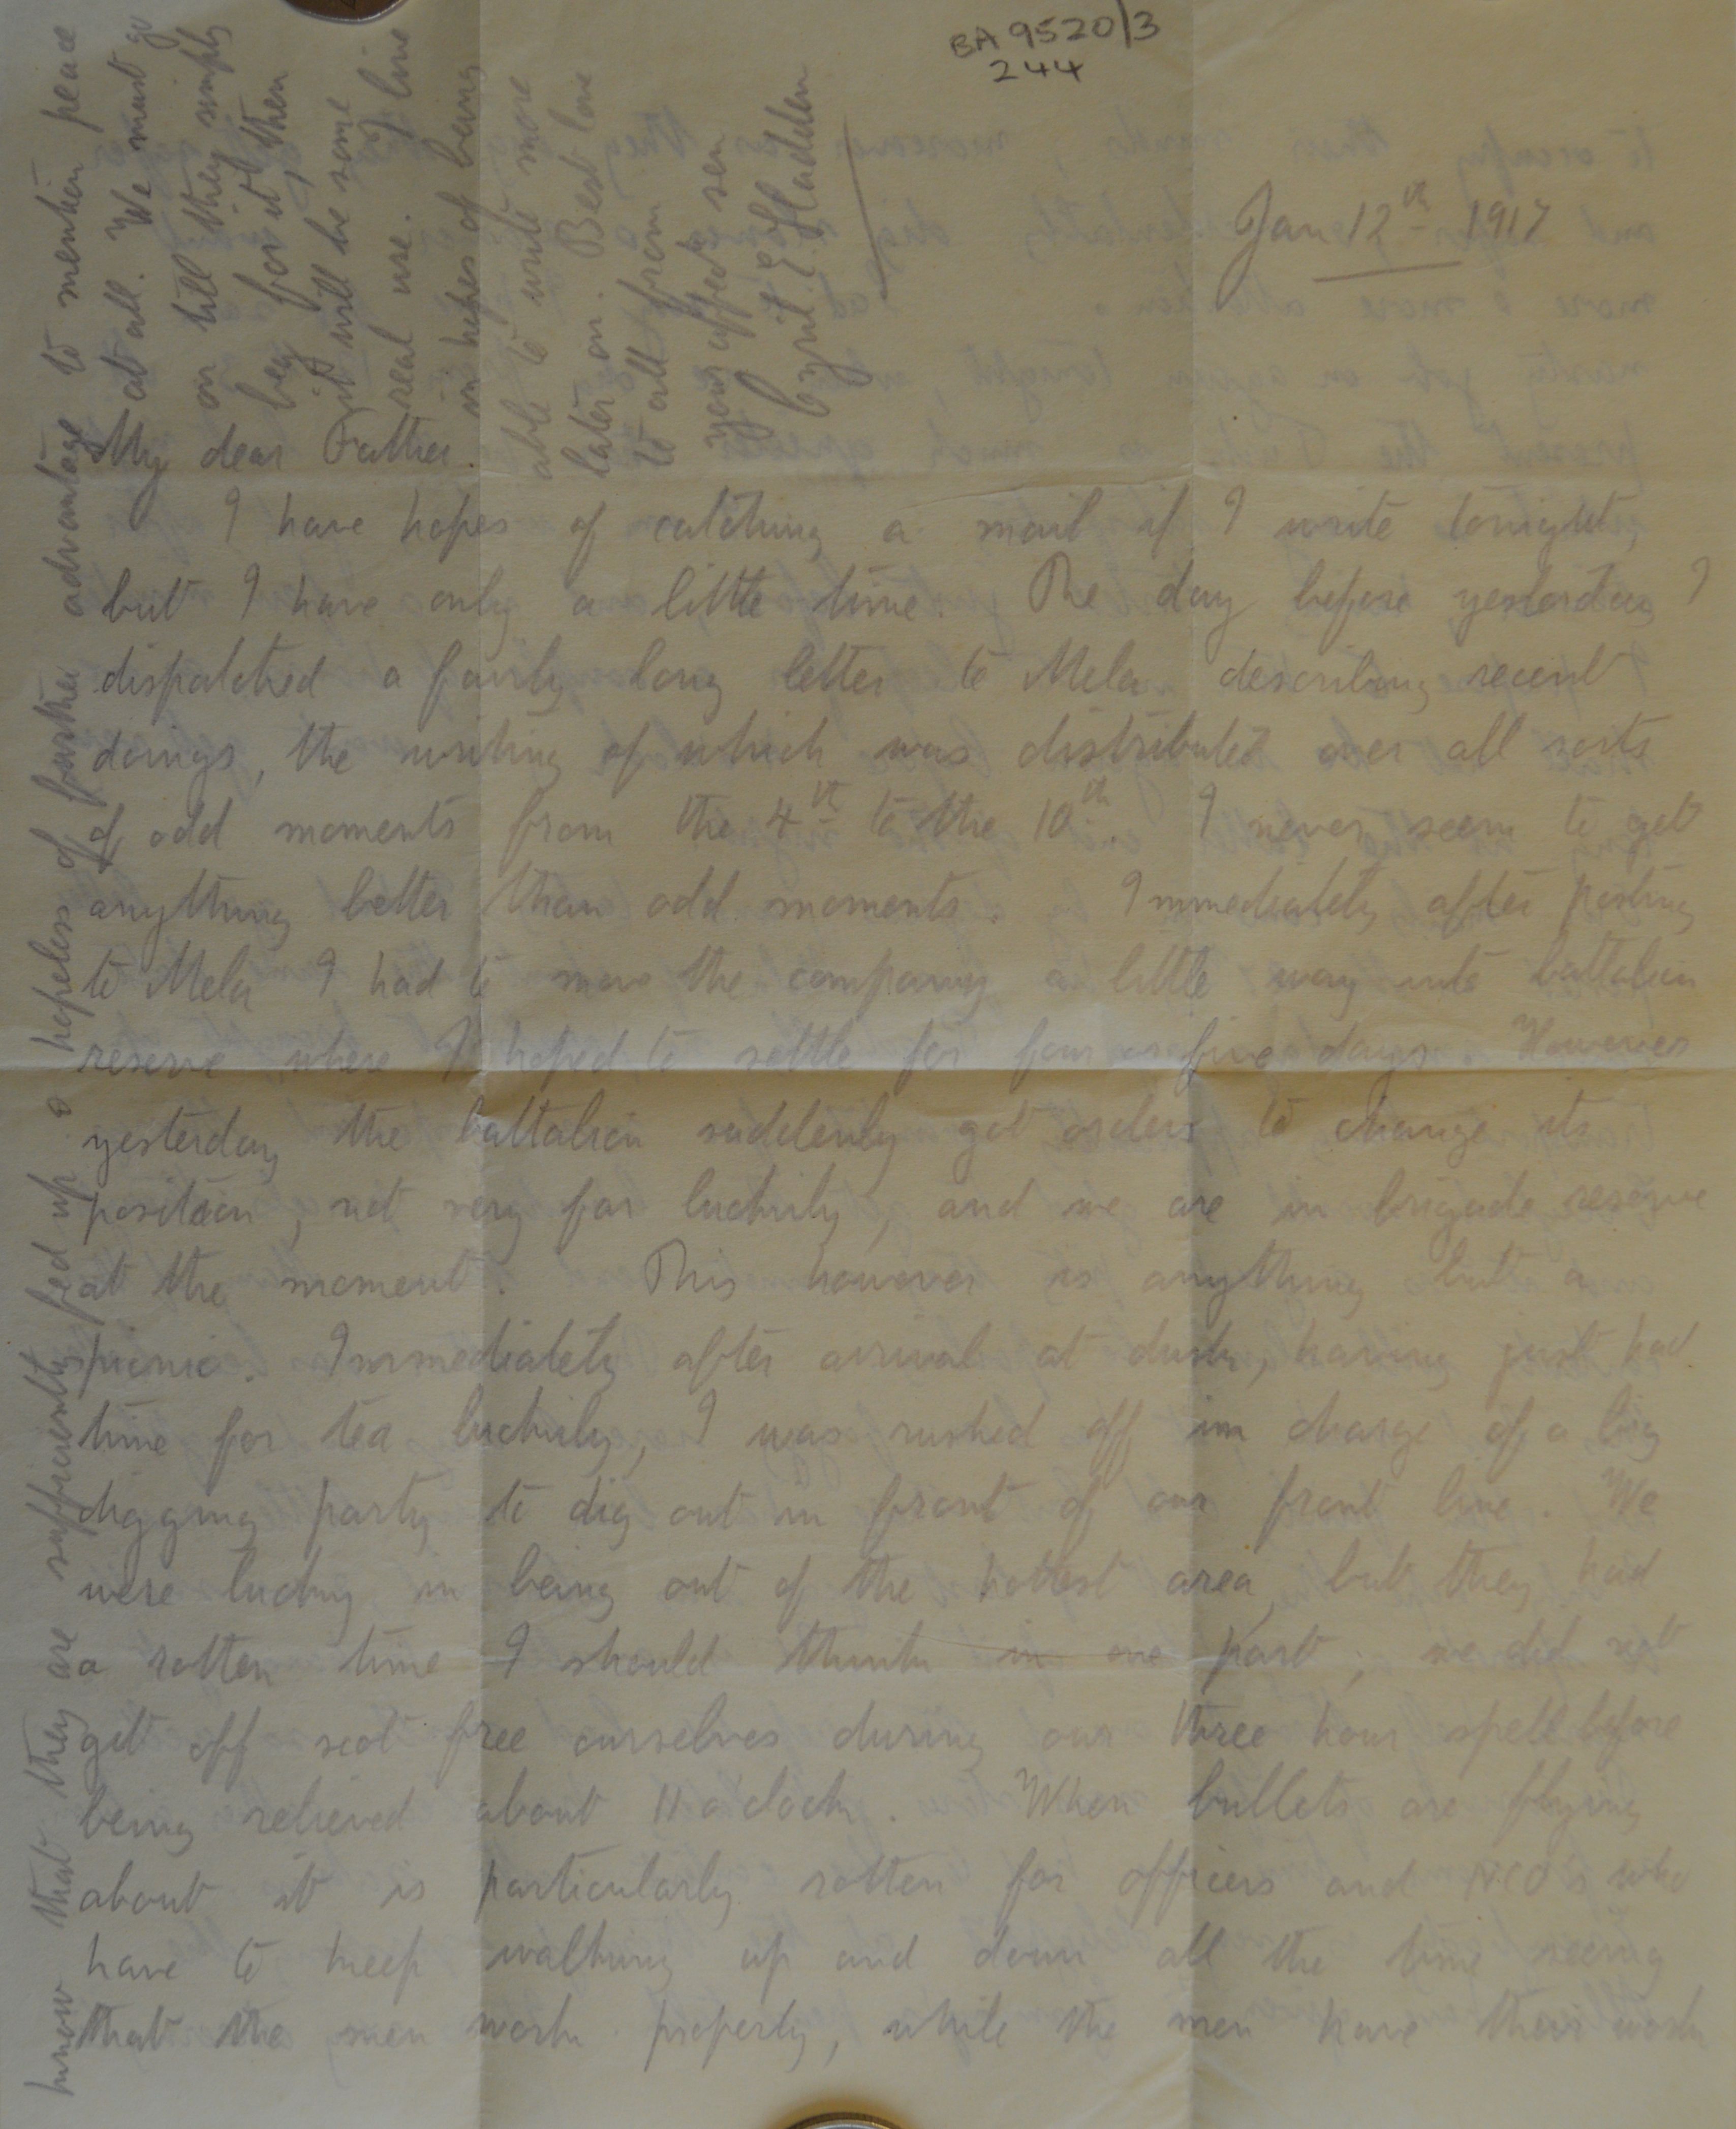 BA 9520/3
244
Jan 12th 1917
My dear Father.
I have hopes of catching a mail if I write tonight,
but I have only a little time. The day before yesterday I
dispatched a fairly long letter to Mela describing recent
doings, the writing of which was distributed over all sorts
of odd moments from the 4th to the 10th. I never seem to get
anything better than odd moments. Immediately after posting
to Mela I had to move the company a little way into battalion
reserve where I hoped to settle for four or five days. However
yesterday the battalion suddenly got orders to change its
position, not very far luckily, and we are in brigade reserve
at the moment. This however is anything but a
picnic. Immediately after arrival at dusk, having just had
time for tea luckily, I was rushed off in charge of a big
digging party to dig out in front of our front line. We
were lucky in being out of the hottest area, but they had
a rotten time I should think in one part; we did not
get off scot free ourselves during our three hour spell before
being relieved about 11 o'clock. When bullets are flying
about it is particularly rotten for officers and NCO's who
have to keep walking up and down all the time seeing
that the men work properly, while the men have their work
know that they are sufficiently fed up & hopeless of further advantage to mention peace
at all. We must go
on till they simply
beg for it, then
it will be some
real use.
in hopes of being
able to write more
later on. Best love
to all from
your affect. son
Cyril E. Sladden